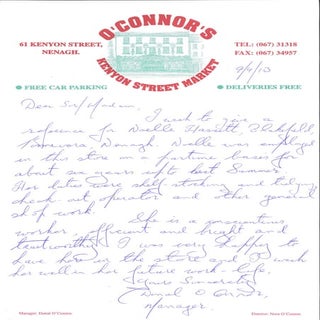 O'CONNOR'S
KENYON STREET MARKET
61 KENYON STREET,
NENAGH.
TEL: (067) 31318
FAX: (067) 34957
9/9/13
FREE CAR PARKING
DELIVERIES FREE
Dear Sir/Madam,
I wish to give a
reference for Noelle
Nenagh. Noelle was employed
in this store on a partime bases for
about six years up to last Summer.
Her duties were shelf stocking and tidying
check-out operator and other general
shop work.
She is a conscientious
worker, efficient and bright and
trustworthy. I was very happy to
have her in the store and I wish
her well in her future work-life.
Yours Sincerely
Donal O'Connor
Manager
Manager: Donal O'Connor
Director: Nora O'Connor